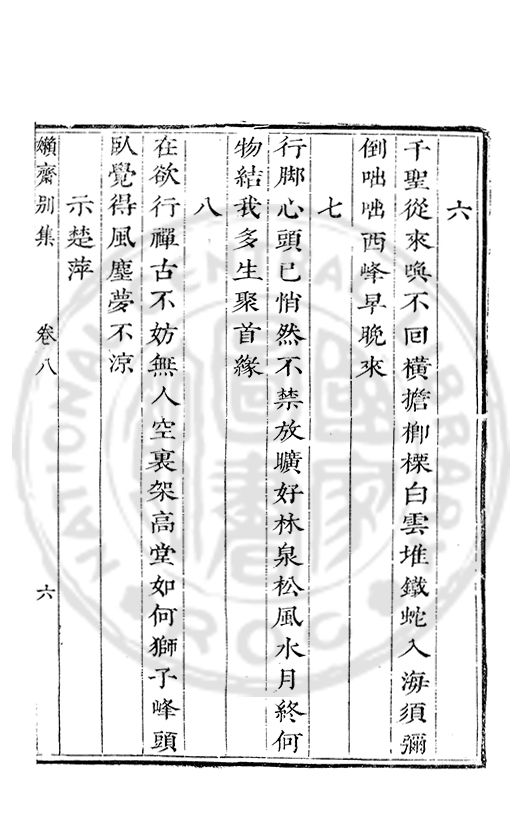 六
千聖從來喚不回橫擔楖㮚白雲堆鐵蛇入海須彌
倒咄咄西峰早晚來
七
行脚心頭已悄然不禁放曠好林泉松風水月終何
物結我多生聚首緣
八
在欲行禪古不妨無人空裏架高堂如何獅子峰頭
臥覺得風塵夢不涼
示楚萍
嬾齋别集 卷八 六
NATIONAL CENTRAL LIBRARY R.O.C.